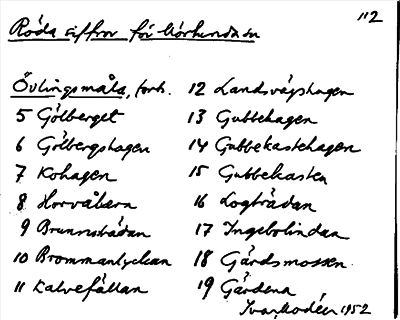 112
Röda siffror för
Övlingsmåla, forts.
5 Gölberget
6 Gölbergshagen
7 Kohagen
8 Horvåkern
9 Brunnsträdan
10 Brommanlyckan
11 Kalvefållan
12 Landsvägshagen
13 Gubbehagen
14 Gubbekastehagen
15 Gubbekasten
16 Logträdan
17 Ingebolindan
18 Gärdsmossen
19 Gärdena
Ivar Modéer 1952